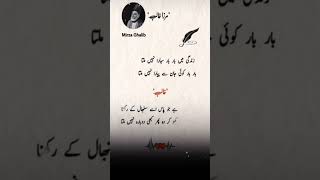 مرزا غالب
Mirza Ghalib
زندگی میں بار بار سہارا نہیں ملتا
بار بار کوئی جان سے پیارا نہیں ملتا
غالب
ہے جو پاس اسے سنبھال کے رکھنا
کھو کر وہ پھر کبھی دوبارہ نہیں ملتا
سنبھال کے رکھنا